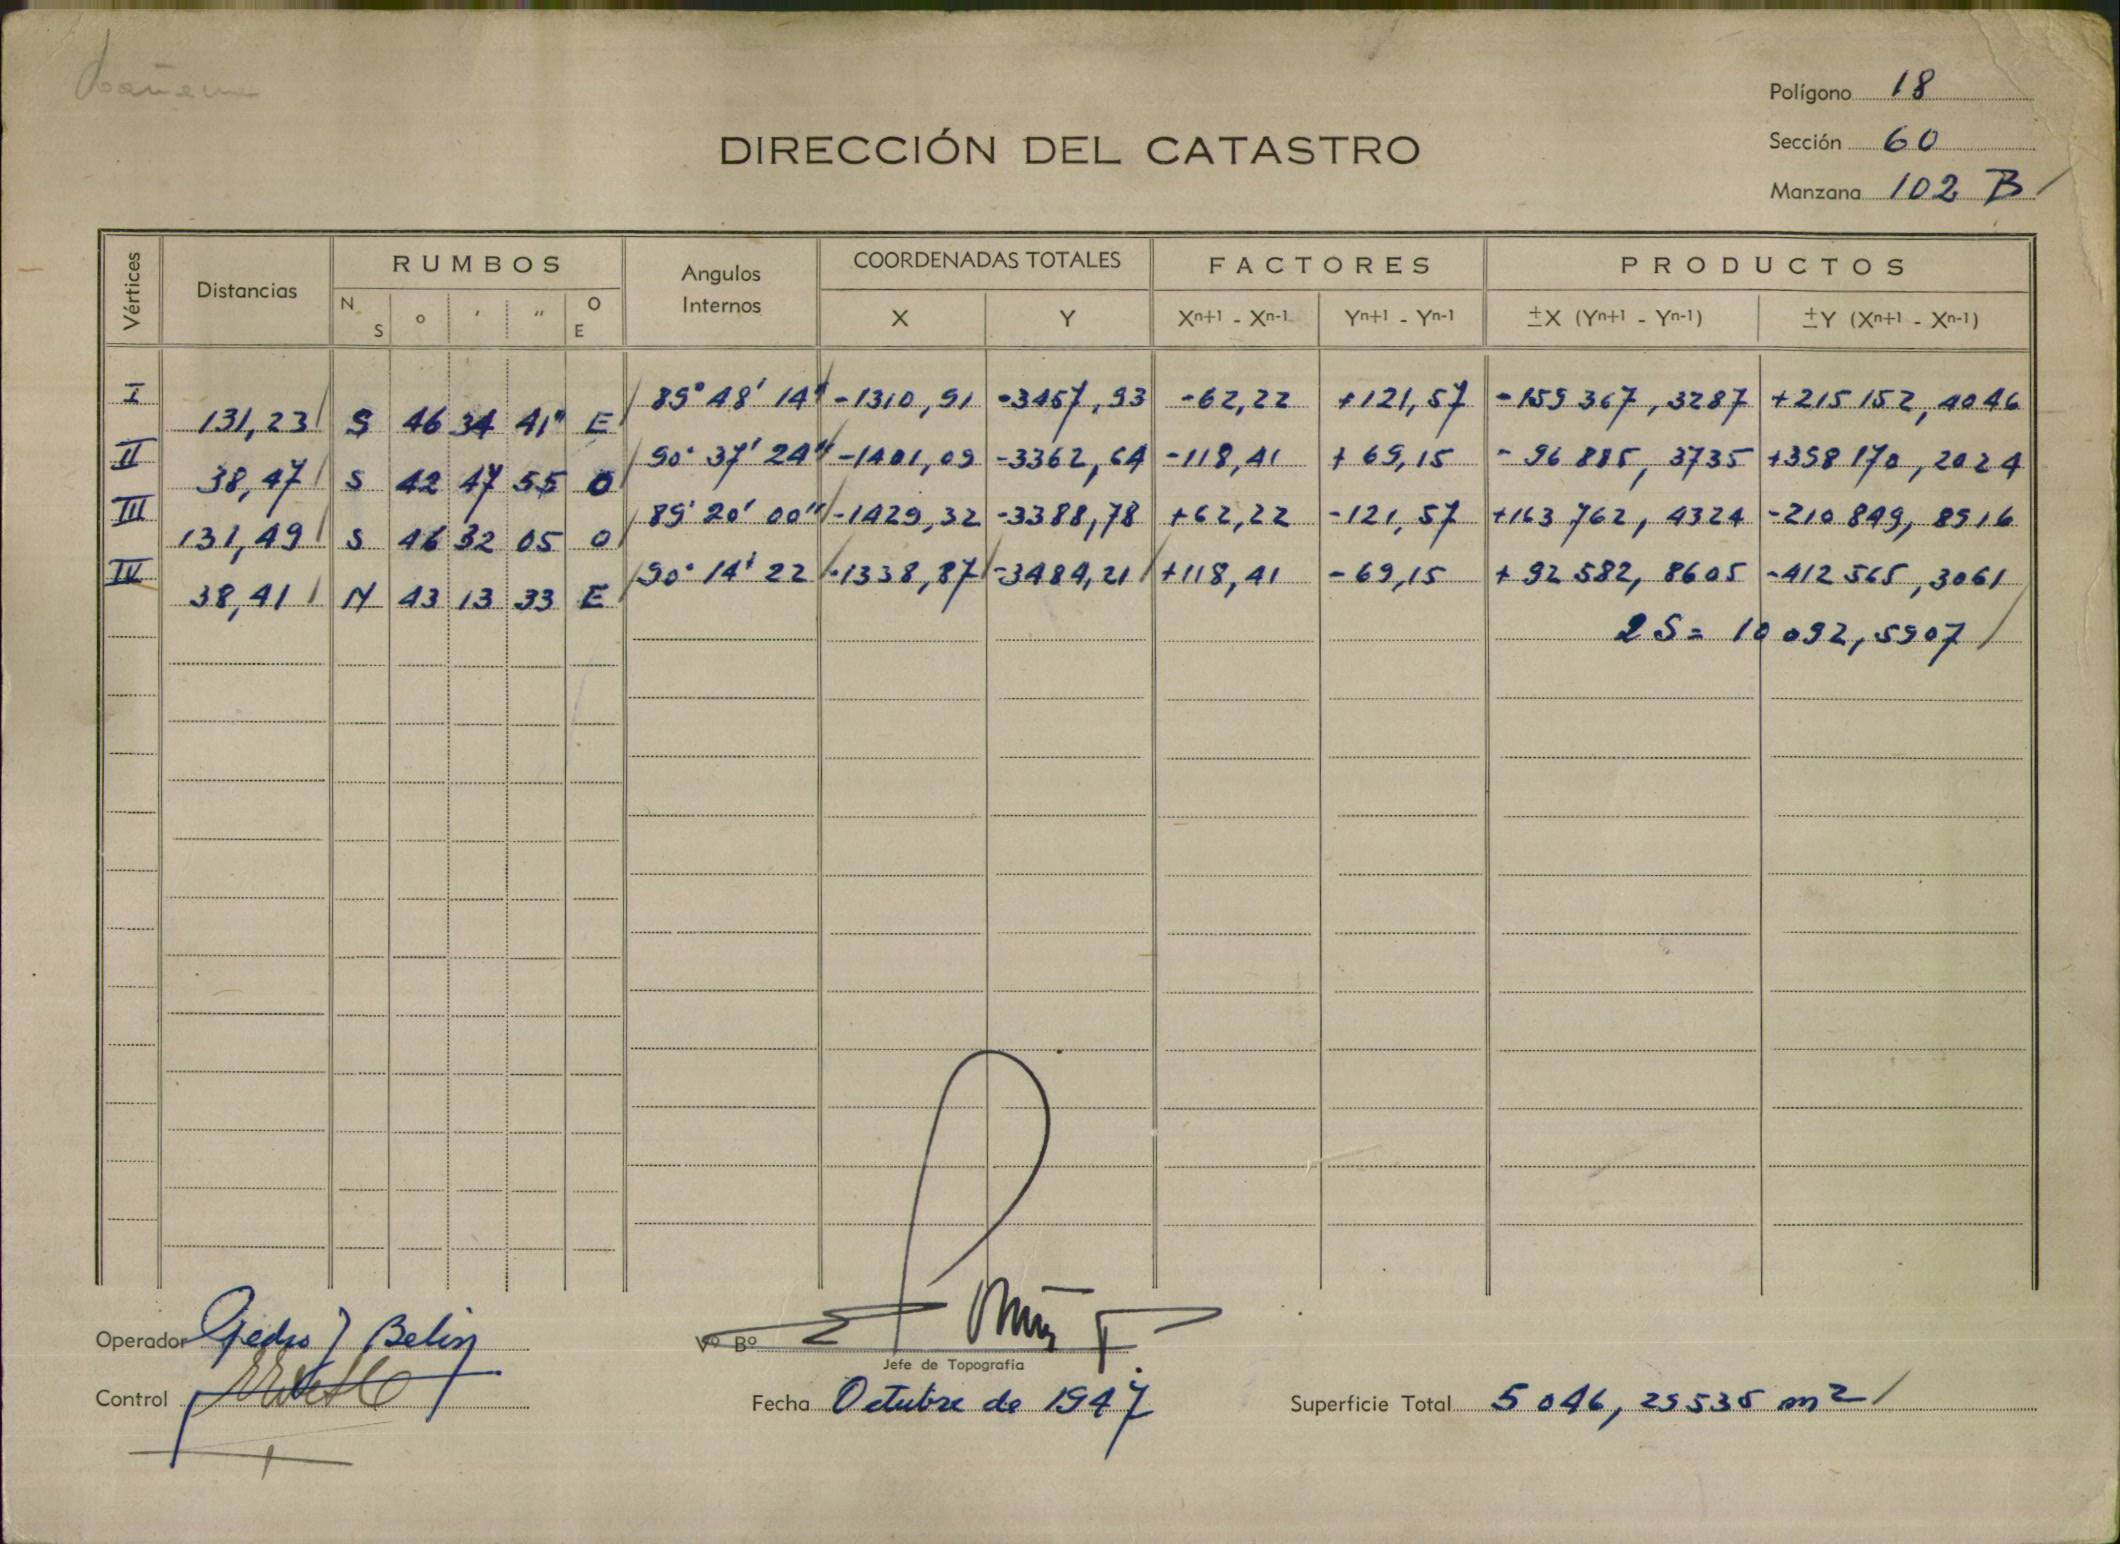 Polígono 18
DIRECCIÓN DEL CATASTRO
Sección 60
Manzana 102 B
Vértices Distancias RUMBOS Angulos Internos COORDENADAS TOTALES FACTORES PRODUCTOS
N S o ′ ″ O E X Y Xn+1 - Xn-1 Yn+1 - Yn-1 ±X (Yn+1 - Yn-1) ±Y (Xn+1 - Xn-1)
I 89° 48' 14" -1310,91 -3457,93 -62,22 +121,57 -159 367,3287 +215 152,4046
131,23 S 46 34 41" E
II 90° 37' 24" -1401,09 -3362,64 -118,41 +69,15 -96 885,3735 +398 170,2024
38,47 S 42 47 55 O
III 89° 20' 00" -1429,32 -3388,78 +62,22 -121,57 +163 762,4324 -210 849,8916
131,49 S 46 32 05 O
IV 90° 14' 22 -1338,87 -3484,21 +118,41 -69,15 +92 582,8605 -412 565,3061
38,41 N 43 13 33 E
2S= 10 092,5907
Operador Pedro J Belin
Vº Bº
Jefe de Topografía
Control
Fecha Octubre de 1947
Superficie Total 5 046,29535 m2